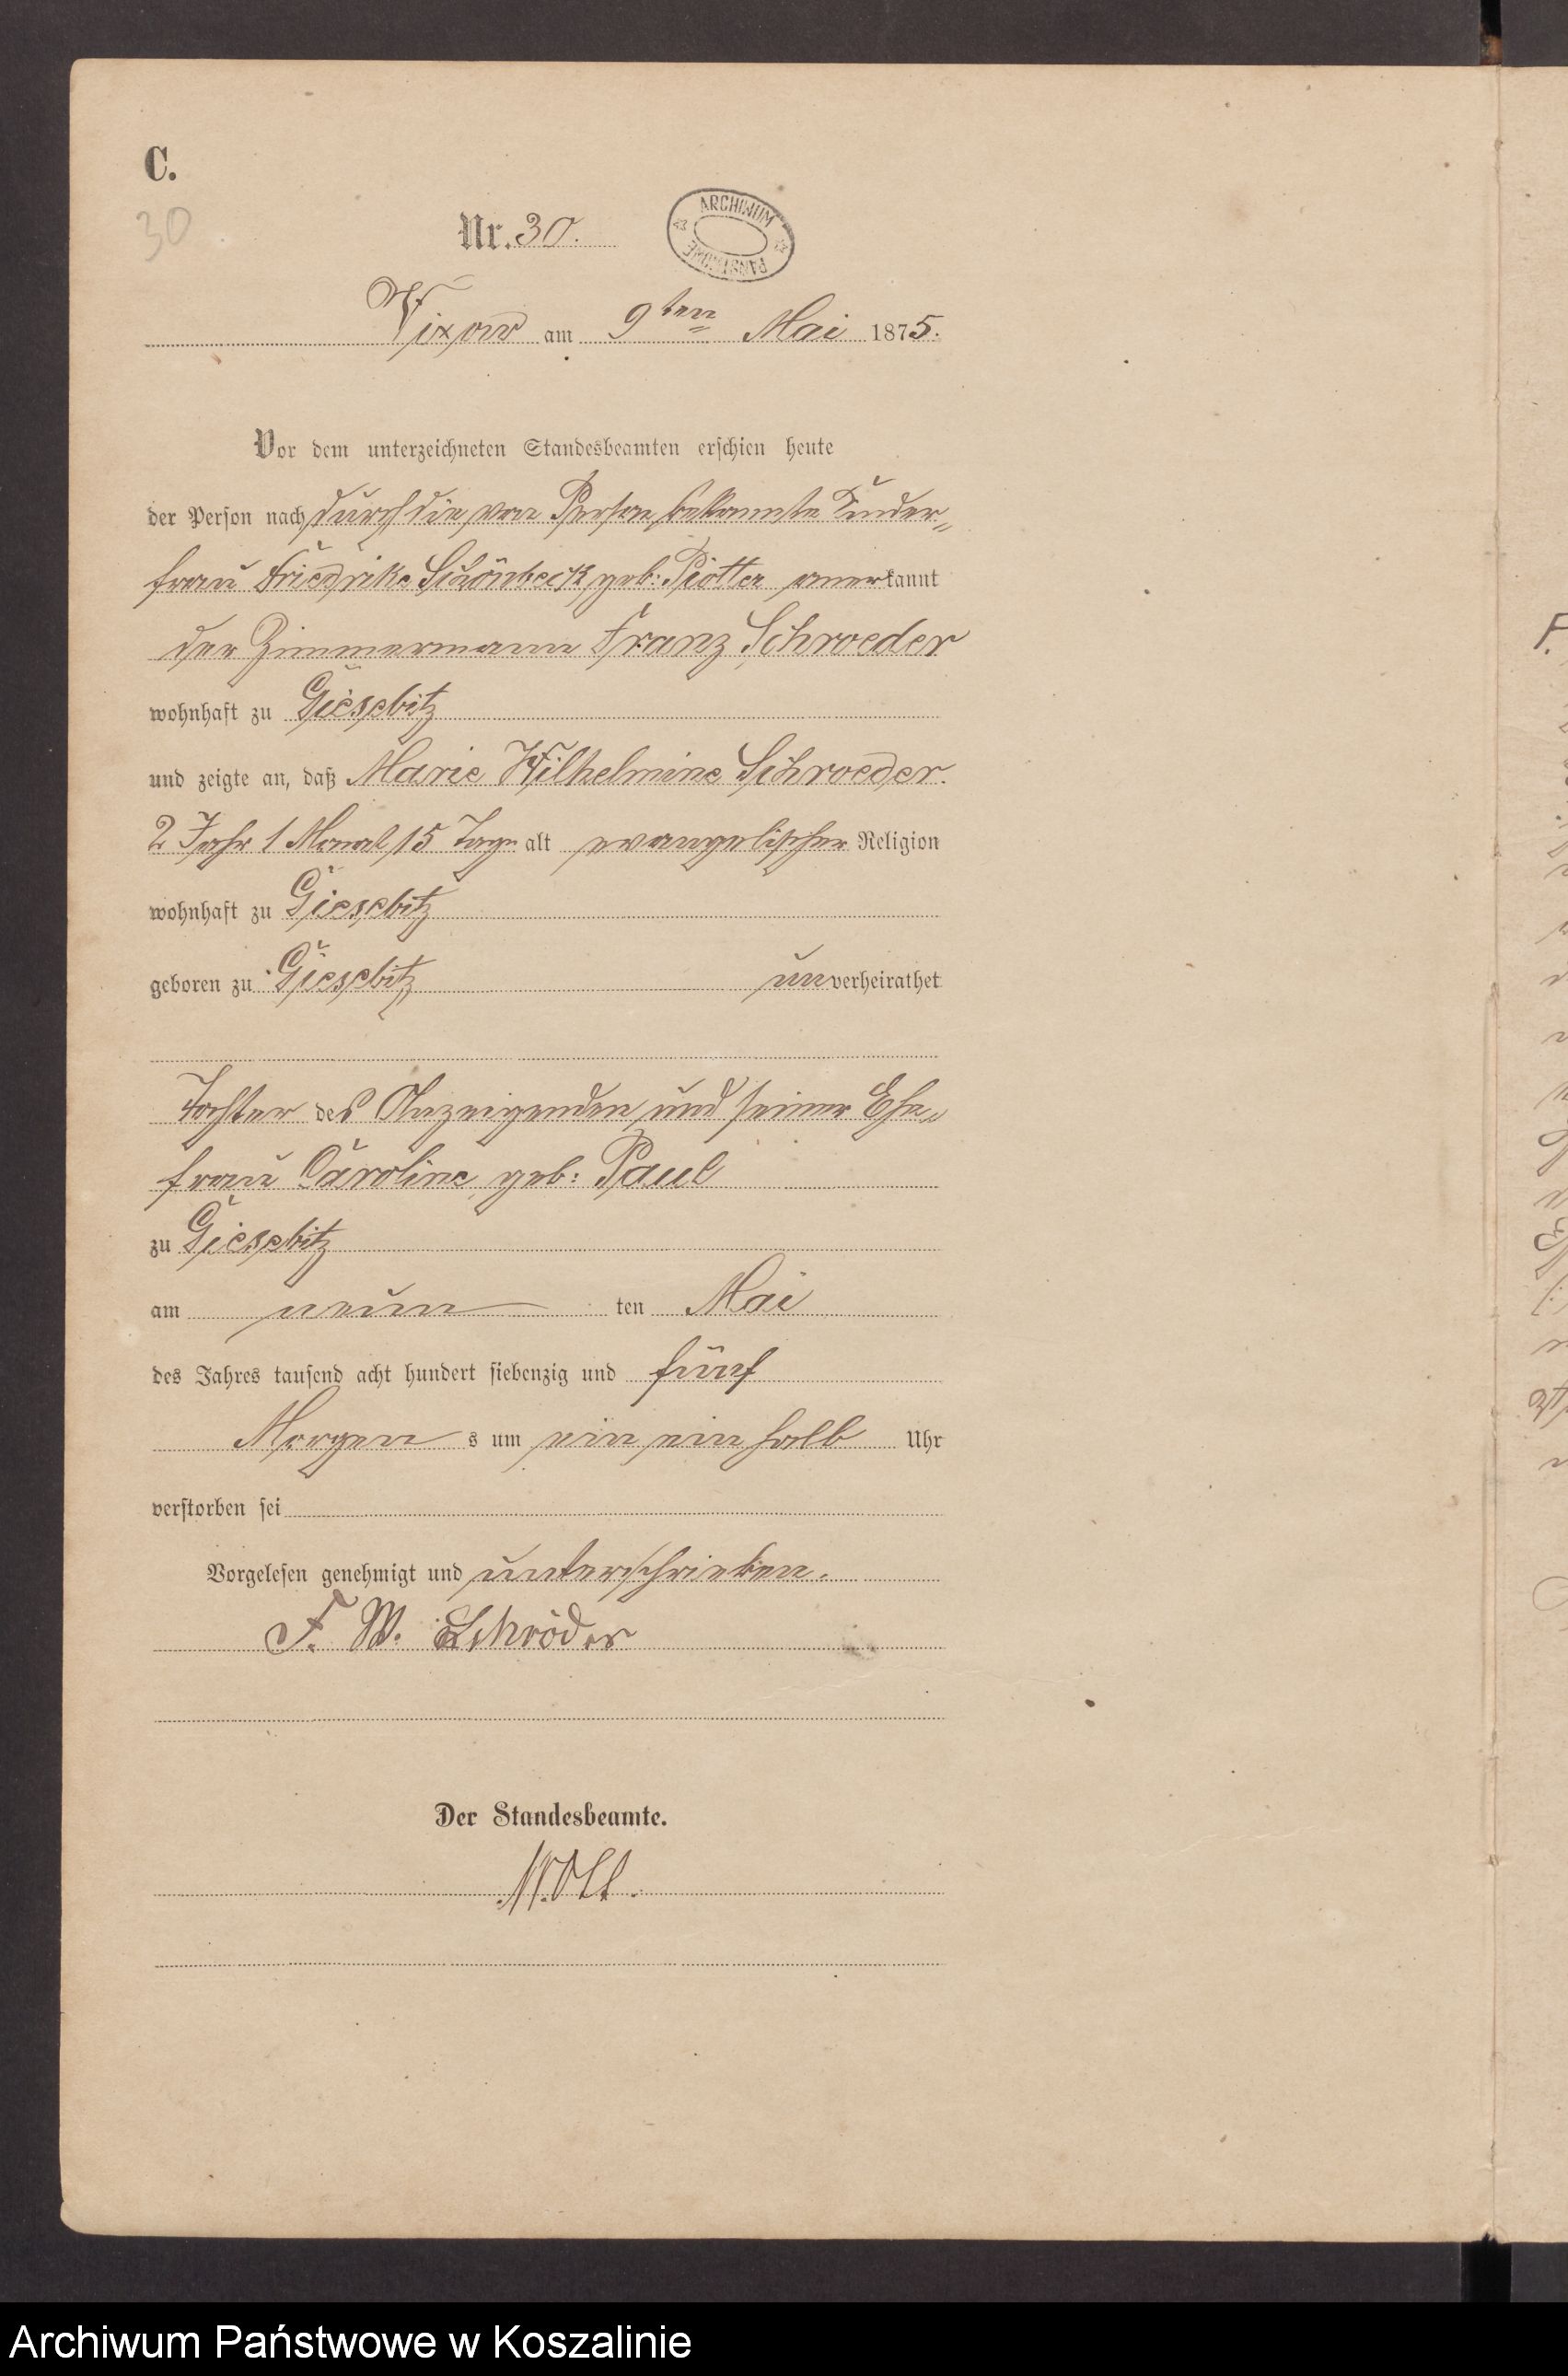 C.
30
Nr. 30.
ARCHIWUM
PAŃSTWOWE
Vixow am 9ten Mai 1875.
Vor dem unterzeichneten Standesbeamten erschien heute
der Person nach durch die von Person bekannte Kinder-
frau Friedrike Schönbeck geb: Piotter anerkannt
der Zimmermann Franz Schroeder
wohnhaft zu Giesebitz
und zeigte an, daß Marie Wilhelmine Schroeder.
2 Jahr 1 Monat 15 Tage alt evangelischer Religion
wohnhaft zu Giesebitz
geboren zu Giesebitz unverheirathet
Tochter des Anzeigenden und seiner Ehe-
frau Caroline geb: Paul
zu Giesebitz
am neun ten Mai
des Jahres tausend acht hundert siebenzig und fünf
Morgen s um ein ein halb Uhr
verstorben sei
Vorgelesen genehmigt und unterschrieben.
F. W. Schröder
Der Standesbeamte.
Archiwum Państwowe w Koszalinie